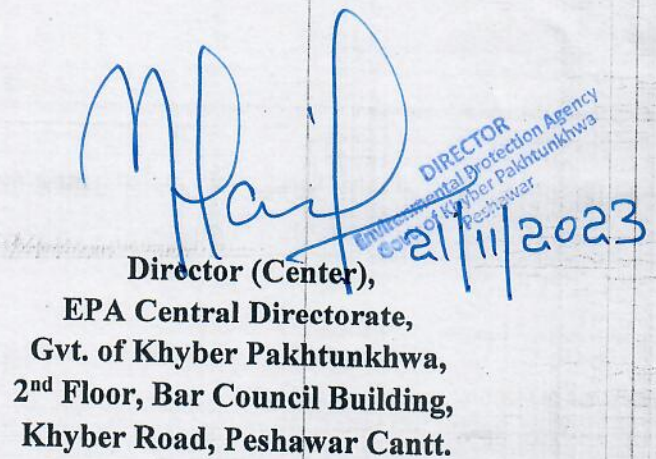 DIRECTOR
Environmental Protection Agency
Govt of Khyber Pakhtunkhwa
Peshawar
21/11/2023
Director (Center),
EPA Central Directorate,
Gvt. of Khyber Pakhtunkhwa,
2nd Floor, Bar Council Building,
Khyber Road, Peshawar Cantt.